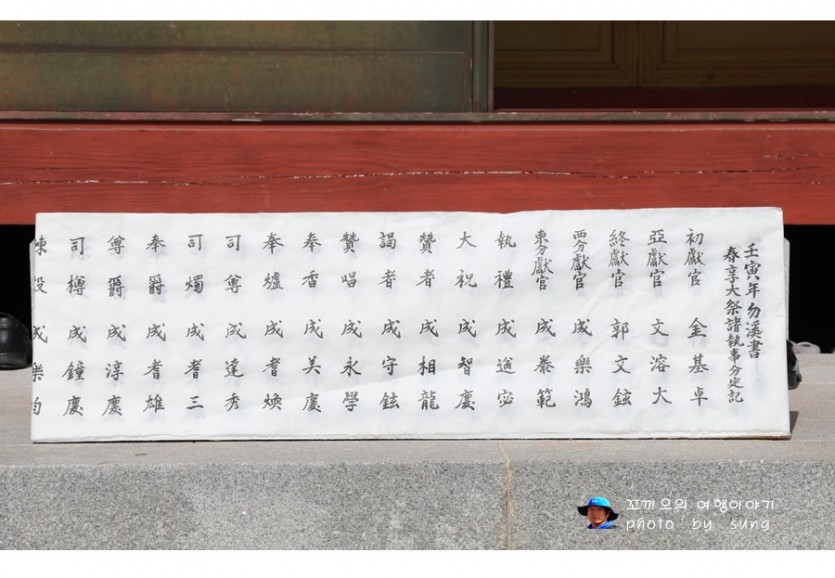 壬寅年勿溪書
春享大祭諸執事分定記
初獻官 金基卓
亞獻官 文溶大
終獻官 郭文鉉
西分獻官 成樂鴻
東分獻官 成泰範
執禮 成
大祝 成智慶
贊者 成相龍
謁者 成守鉉
贊唱 成永學
奉香 成美慶
奉爐 成耆煥
司尊 成達秀
司燭 成耆三
奉爵 成耆雄
奠爵 成淳慶
司樽 成鐘慶
陳設 成樂
꼬끼오의 여행이야기
photo by sung